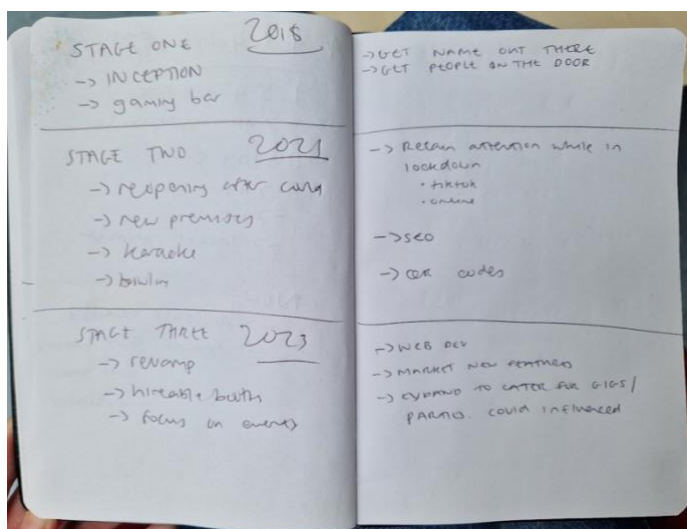 STAGE ONE 2018
-> INCEPTION
-> gaming bar
STAGE TWO 2021
-> reopening after covid
-> new premises
-> karaoke
-> bowling
STAGE THREE 2023
-> revamp
-> hireable booths
-> focus on events
-> GET NAME OUT THERE
-> GET PEOPLE ON THE DOOR
-> Retain attention while in
lockdown
• tiktok
• online
-> SEO
-> QR codes
-> WEB DEV
-> MARKET NEW FEATURES
-> EXPAND TO CATER FOR GIGS/
PARTIES. covid influenced